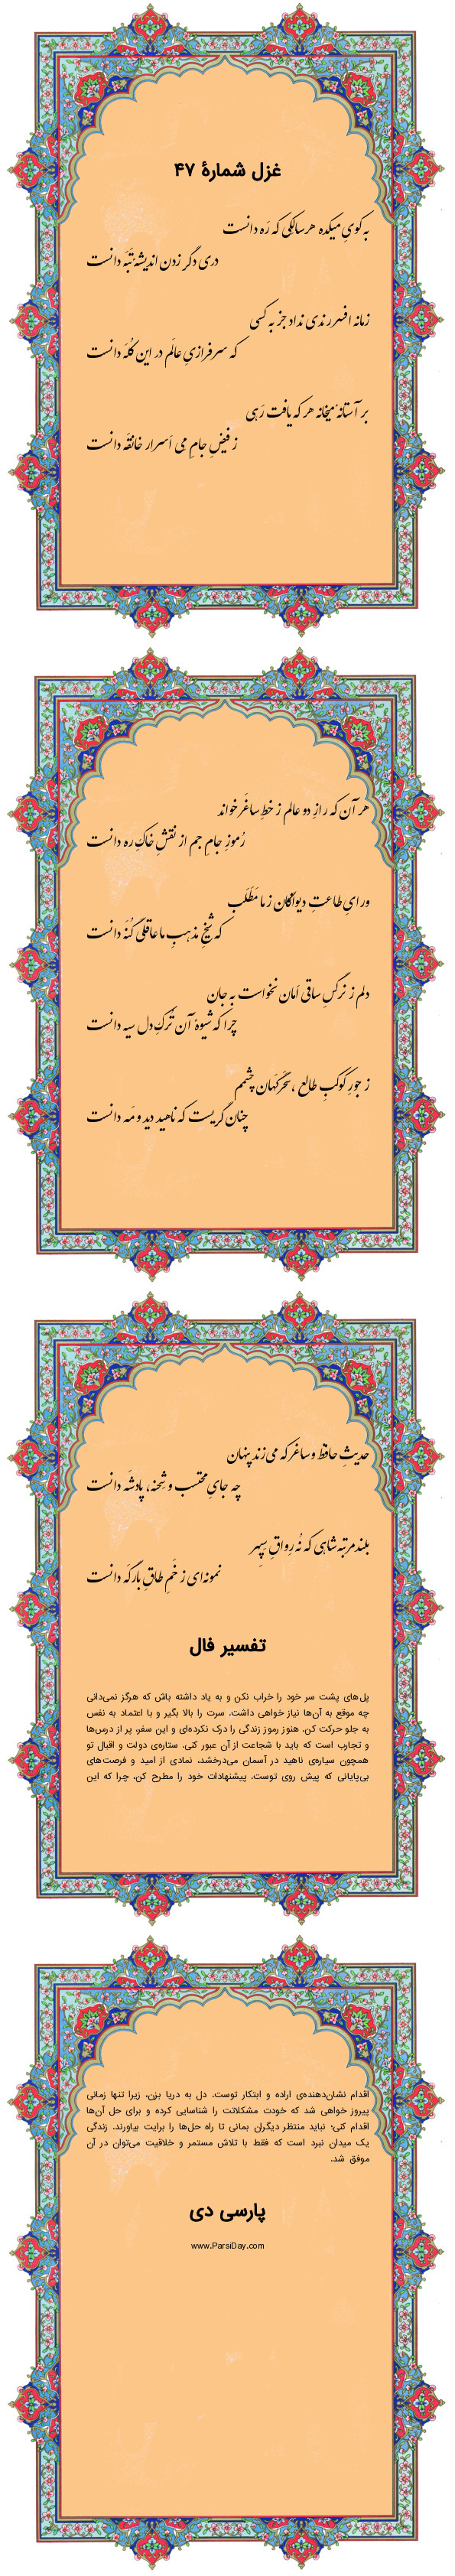 غزل شمارهٔ ۴۷
به کویِ میکده هر سالِکی که رَه دانست
دری دگر زدن اندیشهٔ تَبَه دانست
زمانه افسر رندی نداد جز به کسی
که سرفرازیِ عالَم در این کُلَه دانست
بر آستانهٔ میخانه هر که یافت رَهی
ز فیضِ جامِ می اَسرار خانقَه دانست
هر آن که رازِ دو عالم ز خطِ ساغَر خواند
رُموزِ جامِ جم از نقشِ خاکِ ره دانست
ورایِ طاعتِ دیوانگان ز ما مَطَلَب
که شیخِ مذهبِ ما عاقلی گُنَه دانست
دلم ز نرگسِ ساقی اَمان نخواست به جان
چرا که شیوهٔ آن تُرکِ دل سیه دانست
ز جورِ کوکبِ طالع ، سحرگهان چشمم
چنان گریست که ناهید دید و مَه دانست
حدیثِ حافظ و ساغر که می‌زند پنهان
چه جایِ محتسب و شِحنه، پادشَه دانست
بلندمرتبه شاهی که نُه رِواقِ سِپِهر
نمونه‌ای ز خَمِ طاقِ بارگَه دانست
تفسیر فال
پل‌های پشت سر خود را خراب نکن و به یاد داشته باش که هرگز نمی‌دانی
چه موقع به آن‌ها نیاز خواهی داشت. سرت را بالا بگیر و با اعتماد به نفس
به جلو حرکت کن. هنوز رموز زندگی را درک نکرده‌ای و این سفر، پر از درس‌ها
و تجارب است که باید با شجاعت از آن عبور کنی. ستاره‌ی دولت و اقبال تو
همچون سیاره‌ی ناهید در آسمان می‌درخشد، نمادی از امید و فرصت‌های
بی‌پایانی که پیش روی توست. پیشنهادات خود را مطرح کن، چرا که این
اقدام نشان‌دهنده‌ی اراده و ابتکار توست. دل به دریا بزن، زیرا تنها زمانی
پیروز خواهی شد که خودت مشکلاتت را شناسایی کرده و برای حل آن‌ها
اقدام کنی؛ نباید منتظر دیگران بمانی تا راه حل‌ها را برایت بیاورند. زندگی
یک میدان نبرد است که فقط با تلاش مستمر و خلاقیت می‌توان در آن
موفق شد.
پارسی دی
www.ParsiDay.com